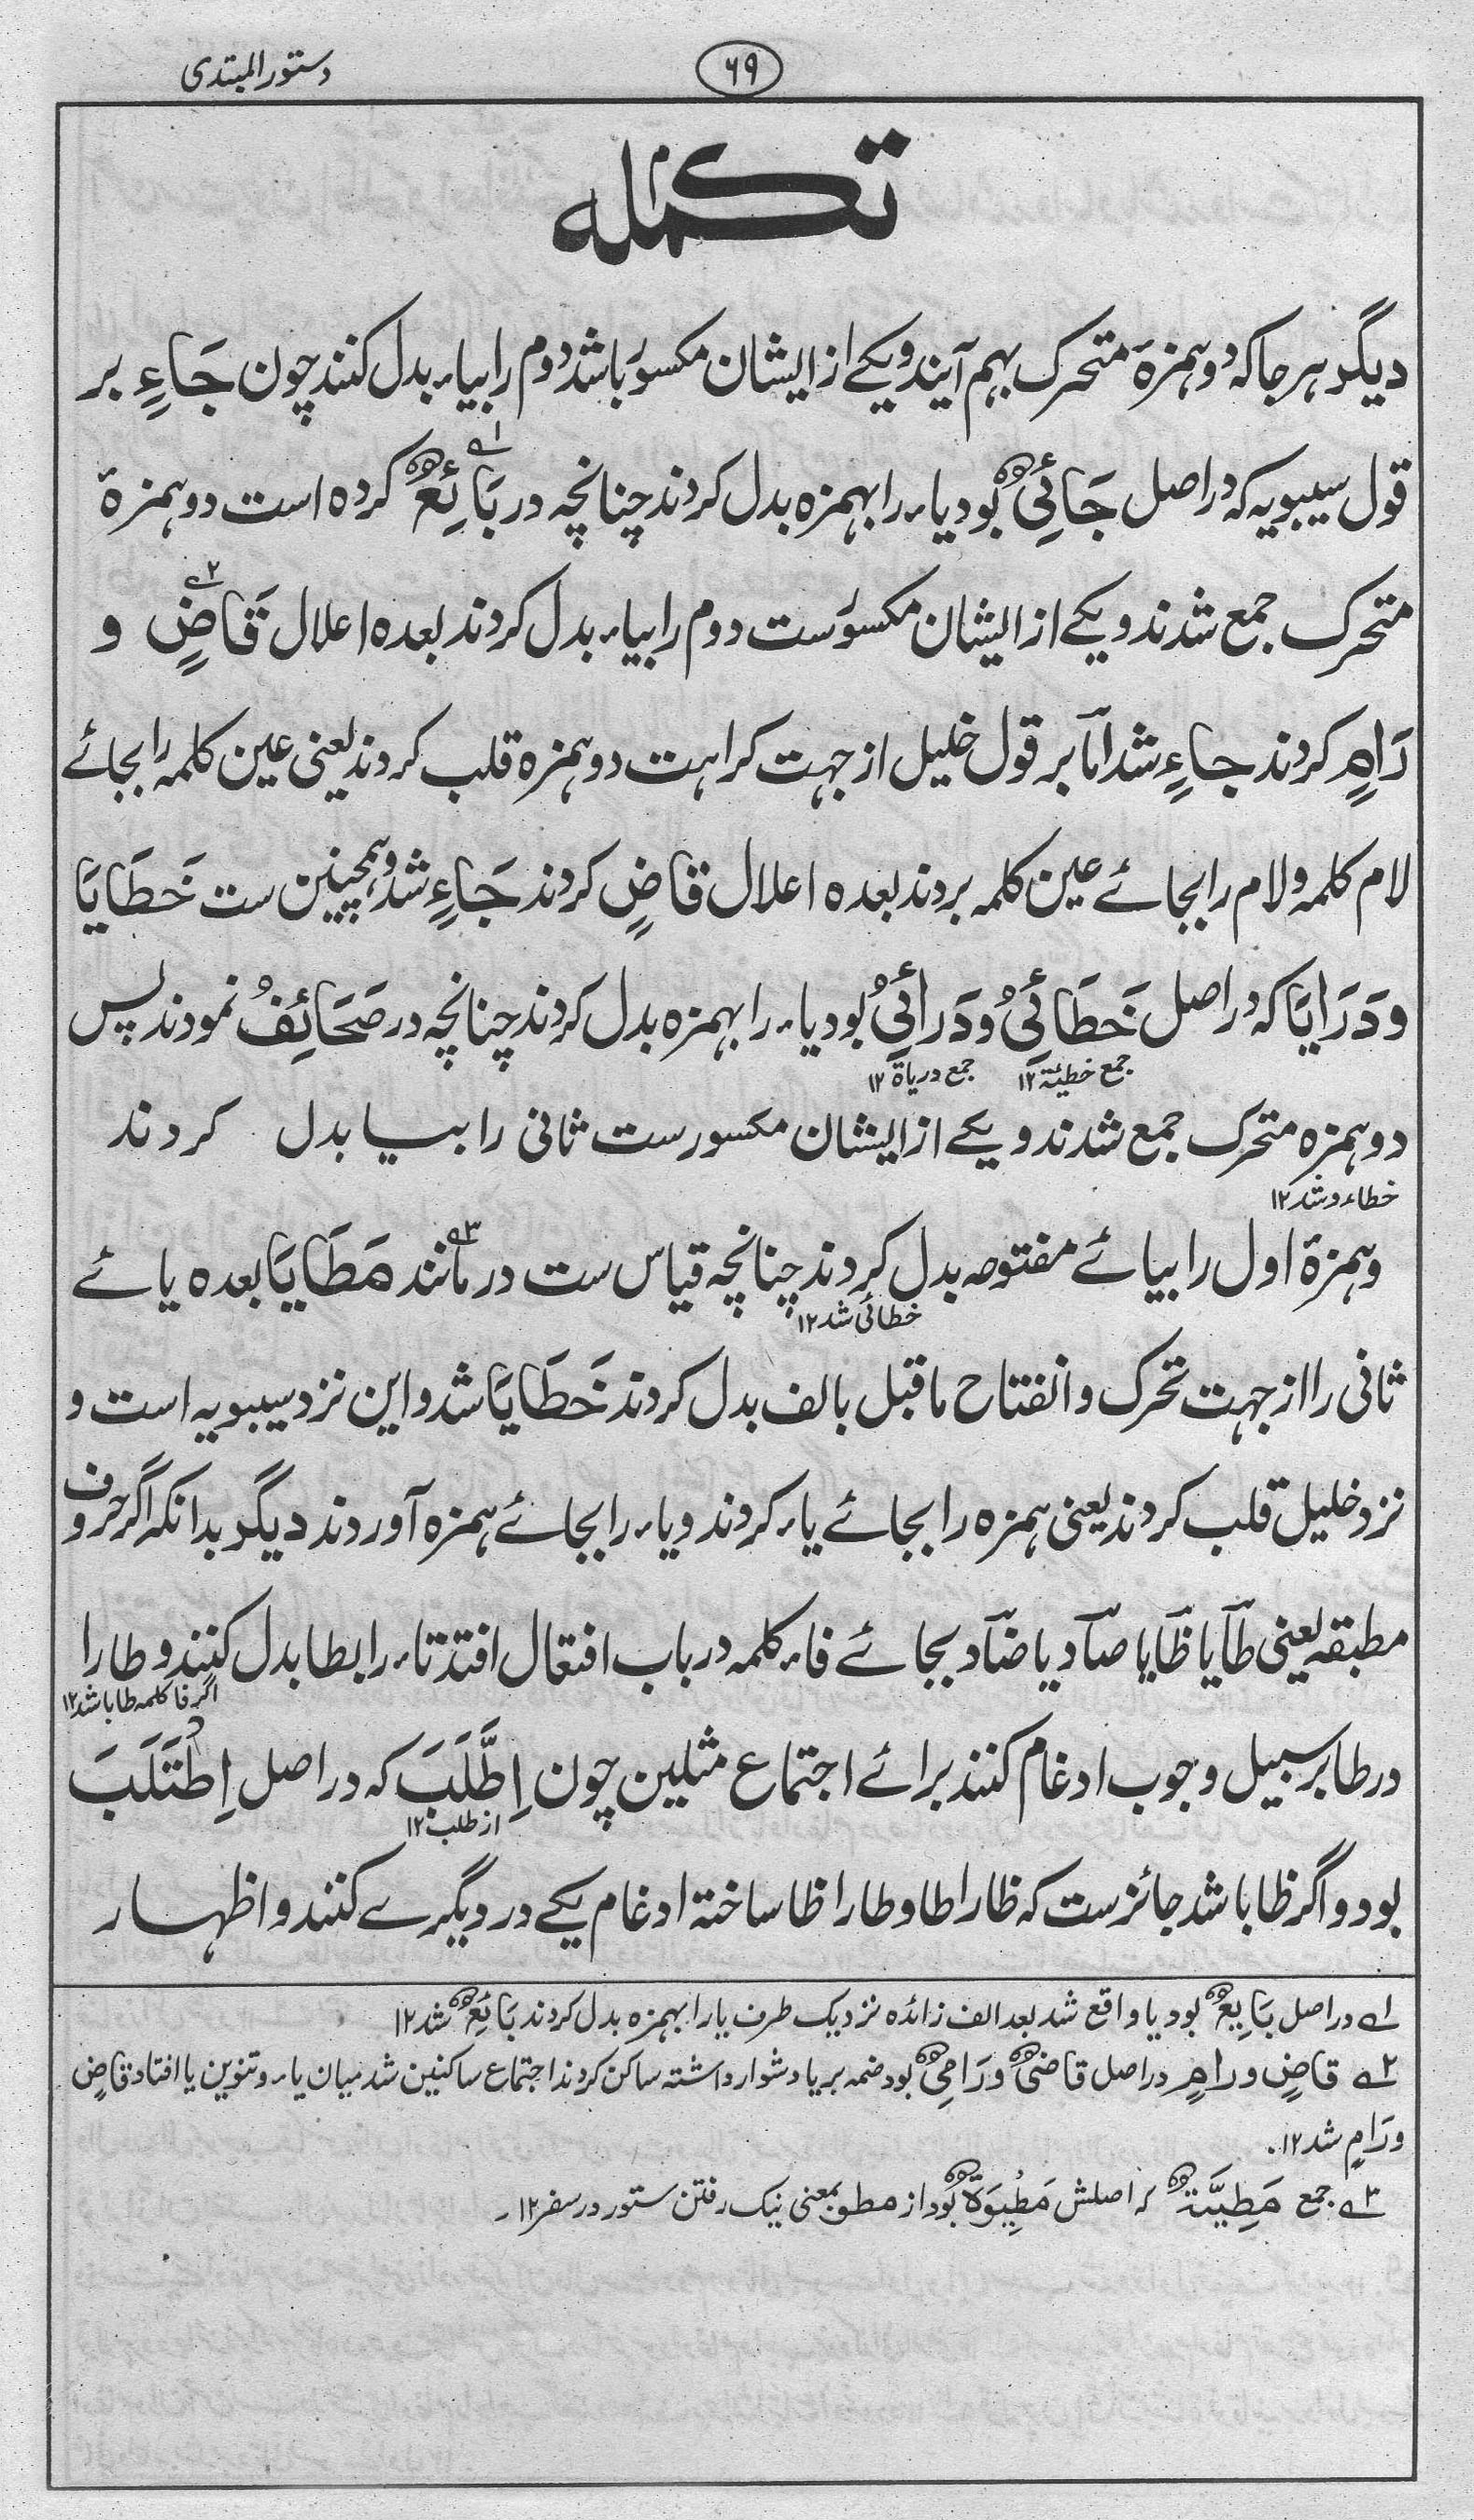 دستور المبتدی
۶۹
تکملہ
دیگر ہر جا کہ دو ہمزۂ متحرک بہم آیند و یکے از ایشان مکسور باشد دوم را بیاء بدل کنند چون جَاءٍ بر
قول سیبویہ کہ در اصل جَائِیٌ بود یاء را بہمزہ بدل کردند چنانچہ در بَائِعٌ کردہ است دو ہمزۂ
متحرک جمع شدند و یکے از ایشان مکسورست دوم را بیاء بدل کردند بعدہ اعلال قَاضٍ و
رَامٍ کردند جاءٍ شد امّا بر قول خلیل از جہت کراہت دو ہمزہ قلب کردند یعنی عین کلمہ را بجائے
لام کلمہ و لام را بجائے عین کلمہ بردند بعدہ اعلال قاضٍ کردند جَاءٍ شد و ہمچنین ست خَطَایَا
و دَرَایَا کہ در اصل خَطَائِیُ و دَرَائِیُ بود یاء را بہمزہ بدل کردند چنانچہ در صَحَائِفُ نمودند پس
جمع خطیئۃ ۱۲ جمع دریاۃ ۱۲
دو ہمزہ متحرک جمع شدند و یکے از ایشان مکسورست ثانی را بیا بدل کردند
خطاء و شد ۱۲
و ہمزۂ اول را بیائے مفتوحہ بدل کردند چنانچہ قیاس ست در مانند مَطَایَا بعدہ یائے
خطائی شد ۱۲
ثانی را از جہت تحرک و انفتاح ماقبل بالف بدل کردند خَطَایَا شد و این نزد سیبویہ است و
نزد خلیل قلب کردند یعنی ہمزہ را بجائے یاء کردند و یاء را بجائے ہمزہ آوردند دیگر بدانکہ اگر حروف
مطبقہ یعنی طآ یا ظآ یا صآد یا ضآد بجائے فاء کلمہ در باب افتعال افتد تاء را بطا بدل کنند و طا را
اگر فا کلمہ طا باشد ۱۲
در طا بر سبیل وجوب ادغام کنند برائے اجتماع مثلین چون اِطَّلَبَ کہ در اصل اِطْتَلَبَ
از طلب ۱۲
بود و اگر ظا باشد جائزست کہ ظا را طا و طا را ظا ساختہ ادغام یکے در دیگرے کنند و اظہار
۱؎ در اصل بَایِعٌ بود یا واقع شد بعد الف زائدہ نزدیک طرف یا را بہمزہ بدل کردند بَائِعٌ شد ۱۲
۲؎ قاضٍ و رامٍ در اصل قاضیٌ و رَامِیٌ بود ضمہ بر یا دشوار داشتہ ساکن کردند اجتماع ساکنین شد میان یاء و تنوین یا افتاد قاضٍ
و رَامٍ شد ۱۲۔
۳؎ جمع مَطِیَّۃٌ کہ اصلش مَطِیْوَۃٌ بود از مطو بمعنی نیک رفتن ستور در سفر ۱۲۔